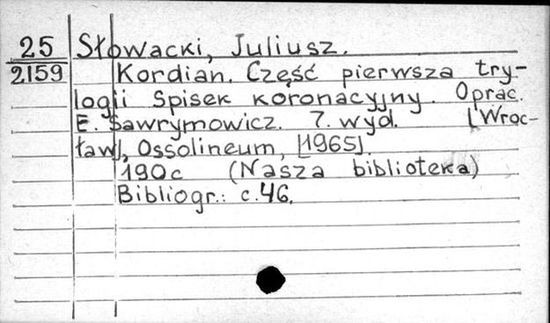 25 Słowacki, Juliusz.
2159 Kordian. Część pierwsza try-
logii Spisek koronacyjny. Oprac.
E. Sawrymowicz. 7. wyd. [Wroc-
ław], Ossolineum, [1965].
190c (Nasza biblioteka)
Bibliogr.: c.46.